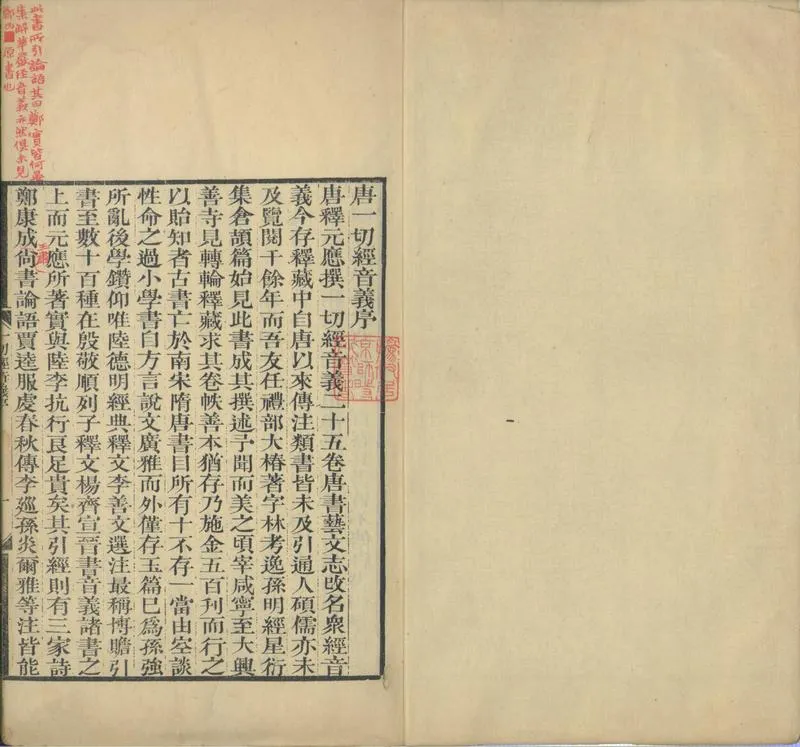 唐一切經音義序
唐釋元應撰一切經音義二十五卷唐書藝文志改名衆經音
義今存釋藏中自唐以來傳注類書皆未及引通人碩儒亦未
及覽閱千餘年而吾友任禮部大椿著字林考逸孫明經星衍
集倉頡篇始見此書成其撰述予聞而美之頃宰咸寧至大興
善寺見轉輪釋藏求其卷帙善本猶存乃施金五百刊而行之
以貽知者古書亡於南宋隋唐書目所有十不存一當由空談
性命之過小學書自方言說文廣雅而外僅存玉篇巳爲孫強
所亂後學鑽仰唯陸德明經典釋文李善文選注最稱博贍引
書至數十百種在殷敬順列子釋文楊齊宣晉書音義諸書之
上而元應所著實與陸李抗行良足貴矣其引經則有三家詩
鄭康成尙書論語賈逵服虔春秋傳李廵孫炎爾雅等注皆能
此書所引論語其曰鄭實皆何晏
集解華嚴經音義亦然俱未見
原書也
一切經音義序
一